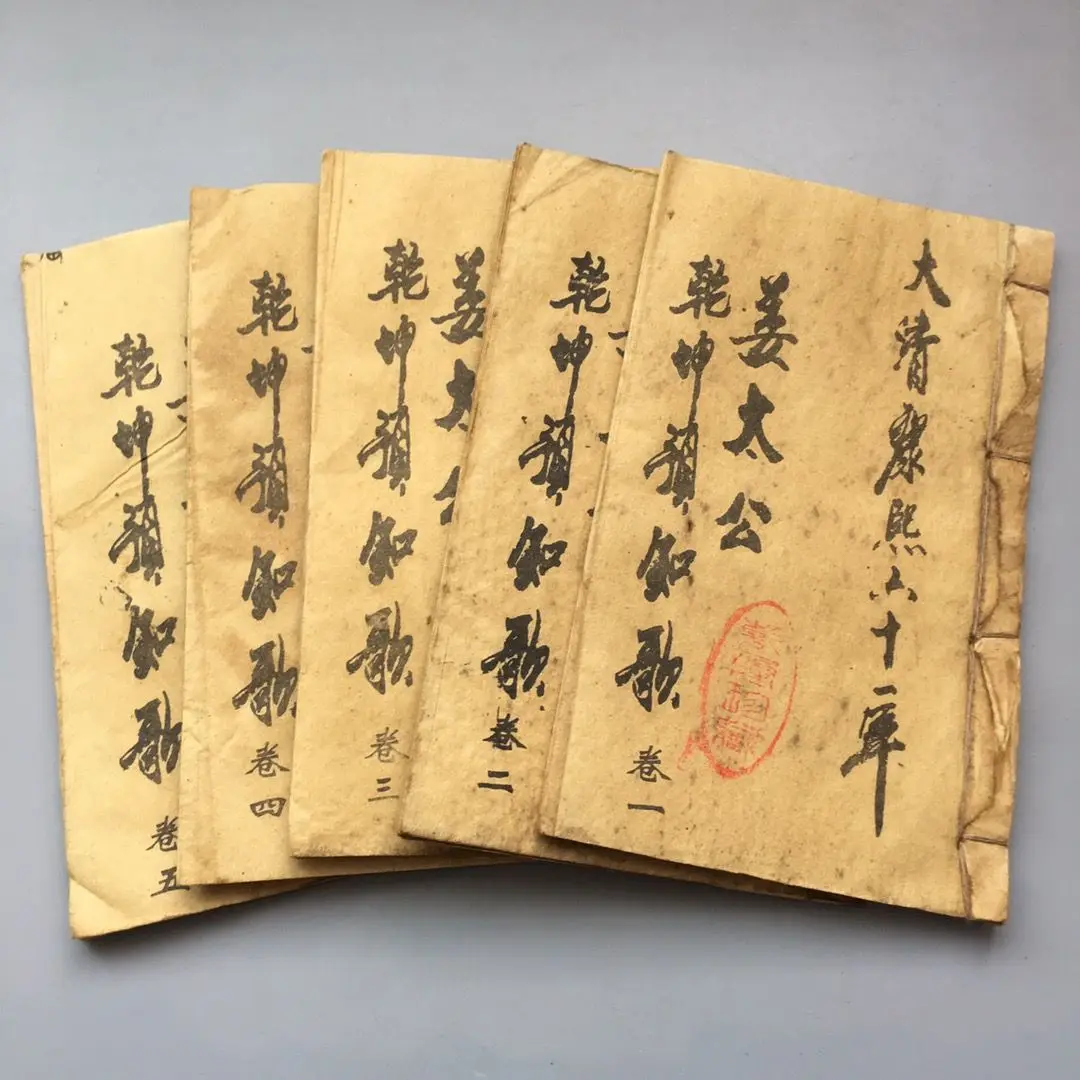 大清康熙六十一年
姜太公
乾坤預知歌 卷一
乾坤預知歌 卷二
姜太公
乾坤預知歌 卷三
乾坤預知歌 卷四
乾坤預知歌 卷五